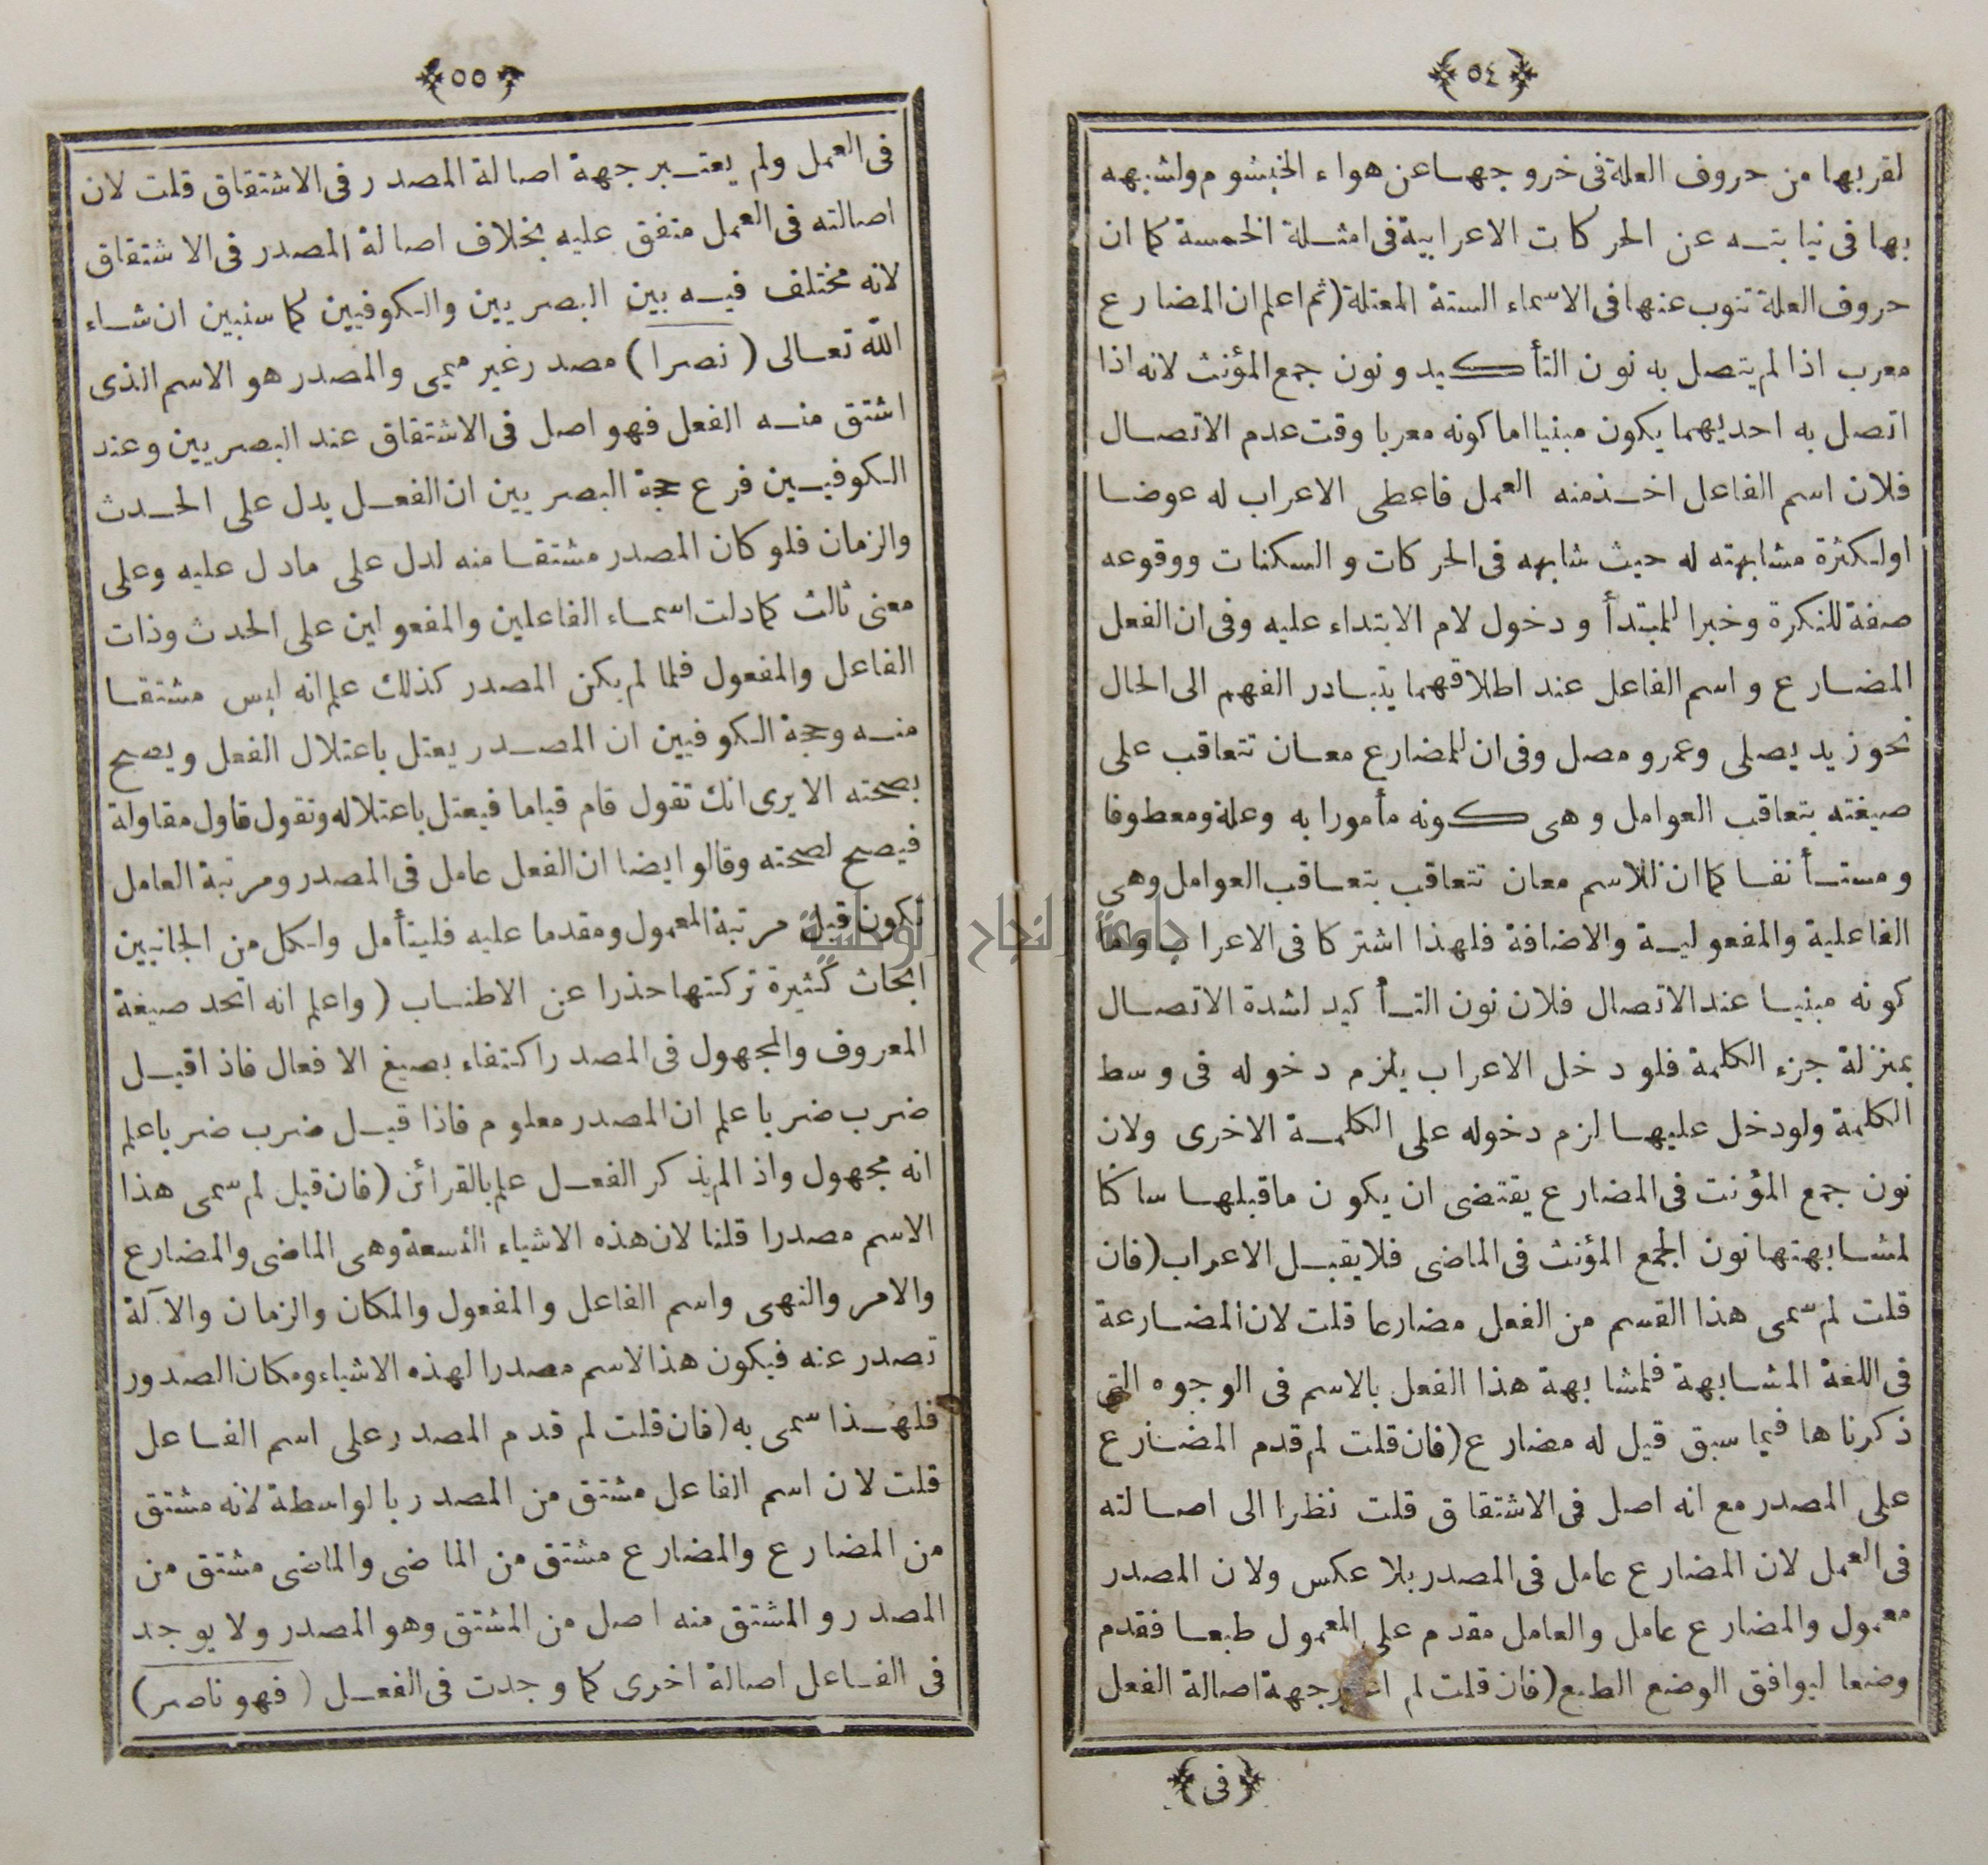 ﴿٥٤﴾
لقربها من حروف العلة فى خروجهـا عن هواء الخيشوم ولشبهه
بها فى نيابتـه عن الحركات الاعرابية فى امثـلة الخمسة كما ان
حروف العلة تنوب عنها فى الاسماء الستة المعتلة (ثم اعلم ان المضارع
معرب اذا لم يتصل به نون التأكيد ونون جمع المؤنث لانه اذا
اتصل به احديهما يكون مبنيا اما كونه معربا وقت عدم الاتصـال
فلان اسم الفاعل اخـذ منه العمل فاعطى الاعراب له عوضـا
اولكثرة مشابهته له حيث شابهه فى الحركات والسكنات ووقوعه
صفة للنكرة وخبرا للمبتدأ ودخول لام الابتداء عليه وفى ان الفعل
المضـارع واسم الفاعل عند اطلاقهما يتبـادر الفهم الى الحال
نحو زيد يصلى وعمرو مصل وفى ان للمضارع معـان تتعاقب على
صيغته بتعاقب العوامل وهى كونه مأمورا به وعلة ومعطوفا
ومستـأنفـا كما ان للاسم معان تتعاقب بتعـاقب العوامل وهى
الفاعلية والمفعوليـة والاضافة فلهذا اشتركا فى الاعراب واما
كونه مبنيـا عند الاتصال فلان نون التـأكيد لشدة الاتصـال
بمنزلة جزء الكلمة فلو دخل الاعراب يلزم دخوله فى وسط
الكلمة ولو دخل عليهـا لزم دخوله على الكلمـة الاخرى ولان
نون جمع المؤنت فى المضارع يقتضى ان يكون ماقبلهـا ساكنا
لمشـابهتها نون الجمع المؤنث فى الماضى فلا يقبـل الاعراب (فان
قلت لم سمى هذا القسم من الفعل مضارعا قلت لان المضـارعة
فى اللغة المشـابهة فلمشابهة هذا الفعل بالاسم فى الوجوه التى
ذكرناها فيما سبق قيل له مضارع (فان قلت لم قدم المضـارع
على المصدر مع انه اصل فى الاشتقاق قلت نظرا الى اصـالته
فى العمل لان المضارع عامل فى المصدر بلا عكس ولان المصدر
معمول والمضارع عامل والعامل مقدم على المعمول طبعـا فقدم
وضعا ليوافق الوضع الطبع (فان قلت لم جهة اصالة الفعل
﴿فى﴾
﴿٥٥﴾
فى العمل ولم يعتـبر جهة اصالة المصدر فى الاشتقاق قلت لان
اصالته فى العمل متفق عليه بخلاف اصالة المصدر فى الاشتقاق
لانه مختلف فيـه بين البصريين والكوفيين كما سنبين ان شـاء
الله تعـالى (نصرا) مصدر غير ميمى والمصدر هو الاسم الذى
اشتق منـه الفعل فهو اصل فى الاشتقاق عند البصريين وعند
الكوفيـين فرع حجة البصريين ان الفعـل يدل على الحـدث
والزمان فلو كان المصدر مشتقـا منه لدل على مادل عليه وعلى
معنى ثالث كما دلت اسمـاء الفاعلين والمفعولين على الحدث وذات
الفاعل والمفعول فلما لم يكن المصدر كذلك علم انه ليس مشتقـا
منـه وحجة الكوفيين ان المصـدر يعتل باعتلال الفعل ويصح
بصحته الا يرى انك تقول قام قياما فيعتل باعتلاله وتقول قاول مقاولة
فيصح لصحته وقالو ايضا ان الفعل عامل فى المصدر ومرتبة العامل
تكون قبل مرتبة المعمول ومقدما عليه فليتأمل ولكل من الجانبين
ابحاث كثيرة تركتها حذرا عن الاطنـاب (واعلم انه اتحد صيغة
المعروف والمجهول فى المصدر اكتفاء بصيغ الافعال فاذا قيـل
ضرب ضربا علم ان المصدر معلوم فاذا قيـل ضرب ضربا علم
انه مجهول واذا لم يذكر الفعـل علم بالقرائن (فان قيل لم سمى هذا
الاسم مصدرا قلنا لان هذه الاشياء التسعة وهى الماضى والمضارع
والامر والنهى واسم الفاعل والمفعول والمكان والزمان والآلة
تصدر عنه فيكون هذا الاسم مصدرا لهذه الاشياء ومكان الصدور
فلهـذا سمى به (فان قلت لم قدم المصدر على اسم الفـاعل
قلت لان اسم الفاعل مشتق من المصدر بالواسطة لانه مشتق
من المضارع والمضارع مشتق من الماضى والماضى مشتق من
المصدر والمشتق منه اصل من المشتق وهو المصدر ولا يوجد
فى الفـاعل اصالة اخرى كما وجدت فى الفعـل (فهو ناصر)
جامعة النجاح الوطنية